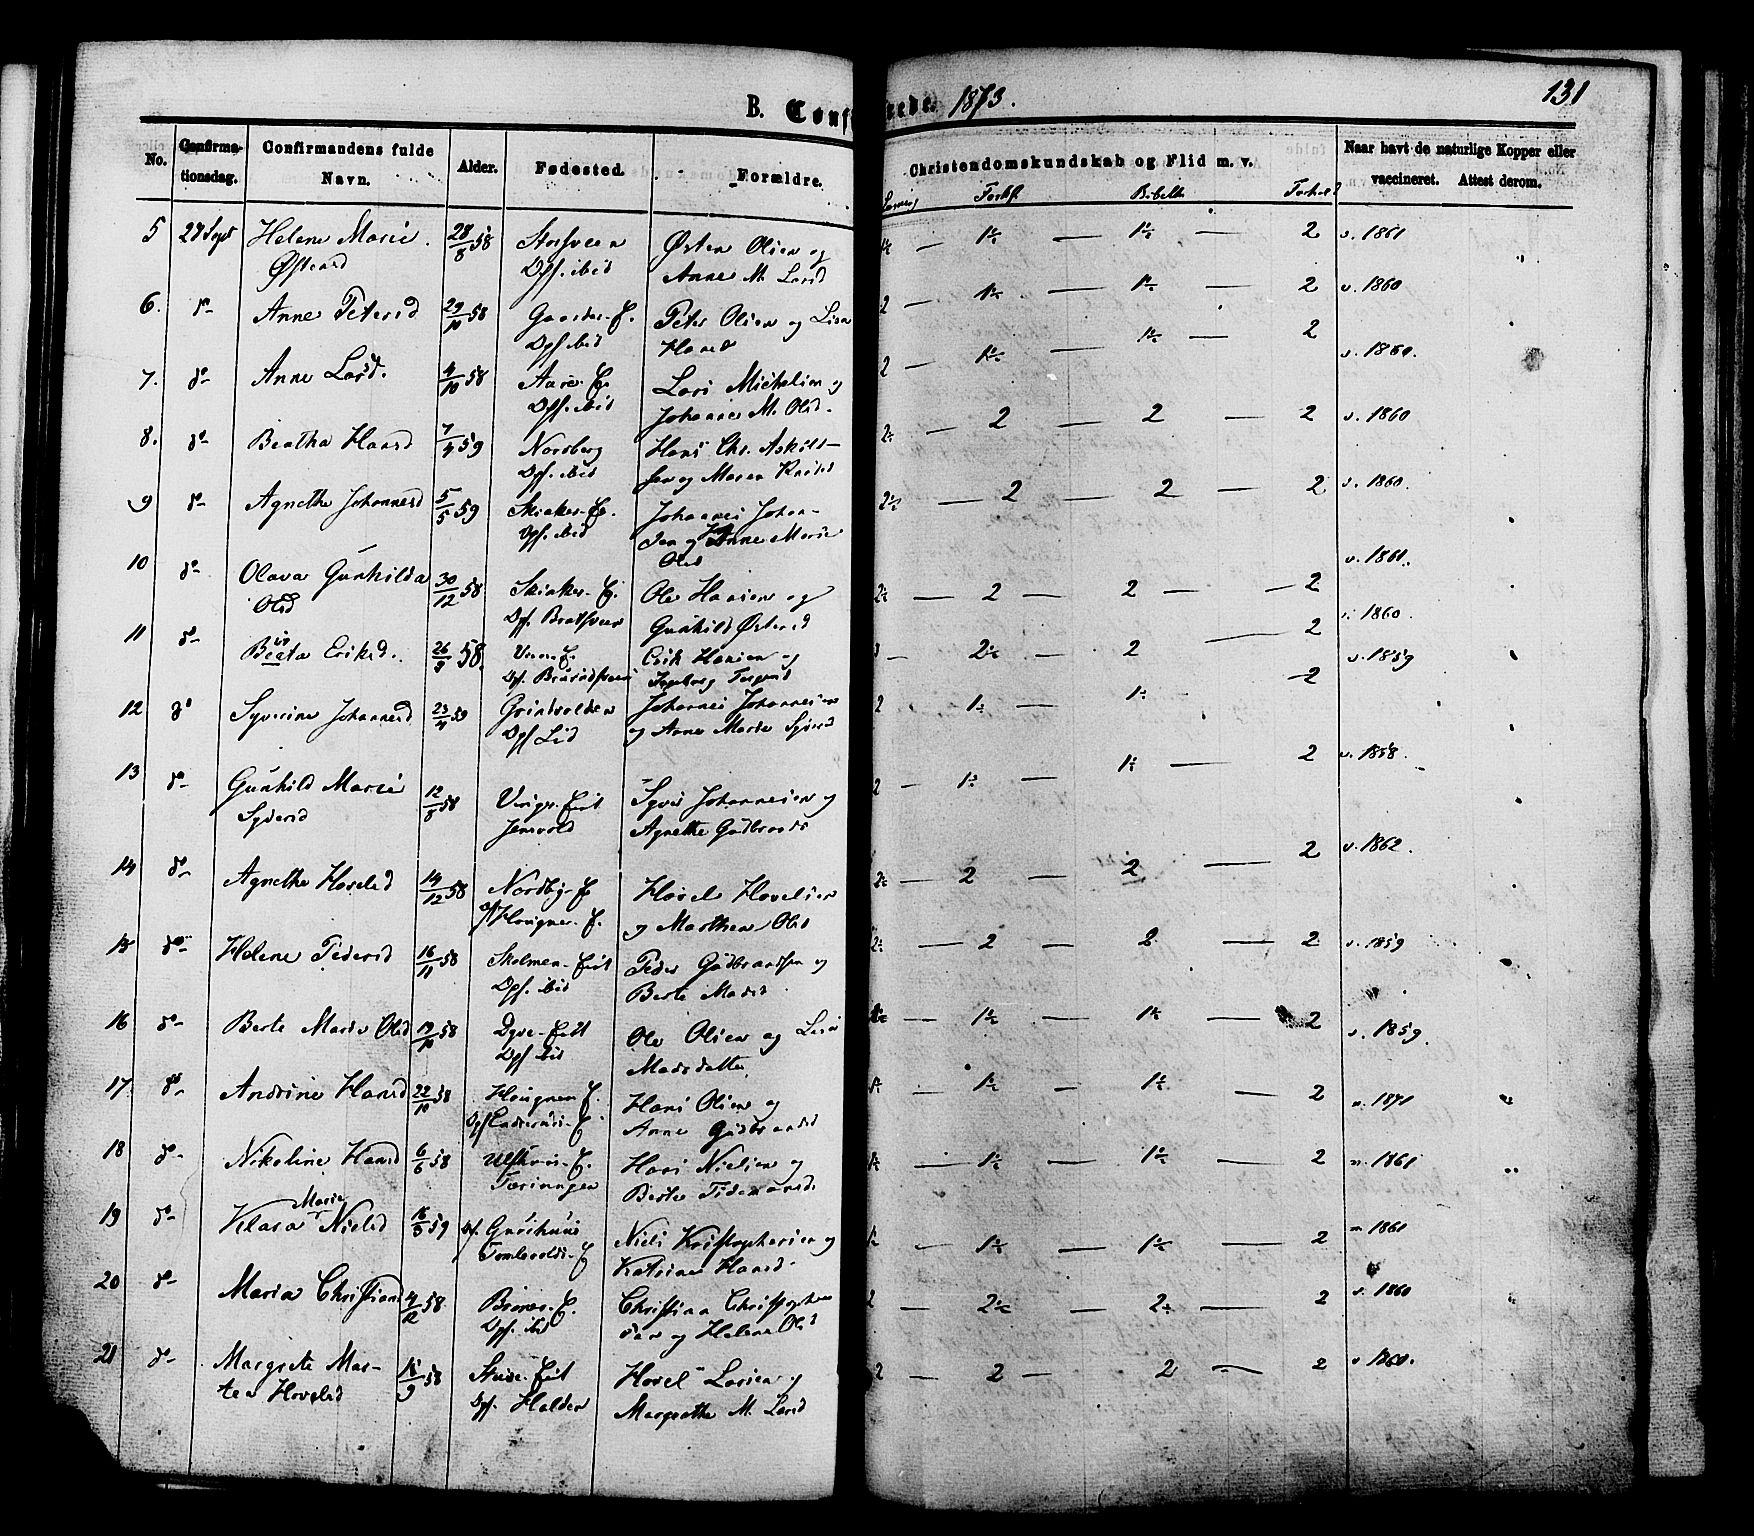 B. Conf rede. 1873. 131
No. Confirmationsdag. Confirmandens fulde Navn. Alder. Fødested. Forældre. Christendomskundskab og Flid m. v. Naar havt de naturlige Kopper eller vaccineret. Attest derom.
Forkl. Forhold
5 28 Sept Helene Marie 28/8 58 Østen Olsen og 1½ — 1½ — 2 v. 1861
Østensd Dpf. ibid Anne M. Larsd
6. do Anne Petersd 29/10 58 Peter Olsen og Lisa 2 — 1½ — 1½ — 2 v. 1860
Dpf ibid Hansd
7. do Anne Larsd. 4/10 58 Aare- E. Lars Michelsen og 2 — 1½ — 1½ — 2 v. 1860.
Dpf. ibid Johanne M. Olsd.
8. do Beatha Hansd 7/4 59 Norsberg Hans Chr. Askild- 2½ — 2 — 2 — 2 v. 1860
Dpf. ibid sen og Maren Knutsd
9 do Agnethe Johannesd 5/5 59 Skiaker- E. Johannes Johan- 2½ — 2 — 2 — 2 v. 1860.
Dpf. ibid sen og Anne Marie
Olsd
10 do Olava Gunhilda 30/12 58 Skiaker- E. Ole Hansen og 2½ — 2 — 2 — 2 v. 1861.
Olsd Dpf. Gunhild Østensd
11 do Eriksd. 26/9 58 Erik Hansen og 3 — 2½ — 2 — 2 v. 1860
Dpf. Ingeborg
12 do Syverine Johannesd 23/4 59 Grintvolden Johannes Johannesen 2 — 1½ — 1½ — 2 v. 1859
Dpf Lid og Anne Marie Syversd
13 do Gunhild Marie 12/8 58 Syver Johannesen og 2 — 1½ — 1½ — 2 v. 1858.
Syversd Jensvold Agnethe Gudbrandsd
14 do Agnethe Hovelsd 14/12 58 Nordby- E Hovel Hovelsen 2½ — 2 — 2 — 2 v. 1862.
og Marthea Olsd
15 do Helene Pedersd 16/11 58 Skolmen- Eiet Peder Gudbrandsen og 2½ — 2 — 2 — 2 v. 1859
Dpf. ibid Berte Madsd
16 do Berte Marie Olsd 19/10 58 Eiet Ole Olsen og 1½ — 1½ — 2 v. 1859.
Dpf ibid Madsdatter
17. do Andrine Hansd 22/10 58 Hougner E. Hans Olsen og 1½ — 1½ — 1½ — 2 v. 1871
Anne Gudbrandsd
18 do Nikoline Hansd 6/6 58 Hans Nielsen og 1½ — 1½ — 1½ — 2 v. 1861
Berte Tidemandsd.
19 do Klara Marie Nielsd 16/3 59 Niels Kristophersen og 1½ — 1½ — 1½ — 2 v. 1861
Tomlevolds- E Katrine Hansd.
20 do Maria Christiansd 4/12 58. Christian Christopher 2 — 2½ — 2½ — 2 v. 1860
Dpf. ibid sen og Helene Olsd
21 do Margrete Mar- 15/9 58 Eiet Hovel Larsen og 2 — 2 — 2 — 2 v 1860.
tea Hovelsd Dpf. Halden Margrethe M. Larsd